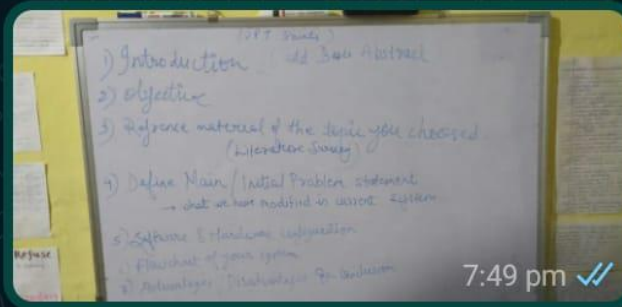 (PPT Points)
1) Introduction : add Abstract
2) Objective
3) Refrence material of the topic you choosed.
(Literature Survey)
4) Define Main / Initial Problem statement
→ what we have modified in current system
5) Software & Hardware configuration
) Flowchart of your system
8) Advantages, Disadvantages Conclusion
Refuse
7:49 pm